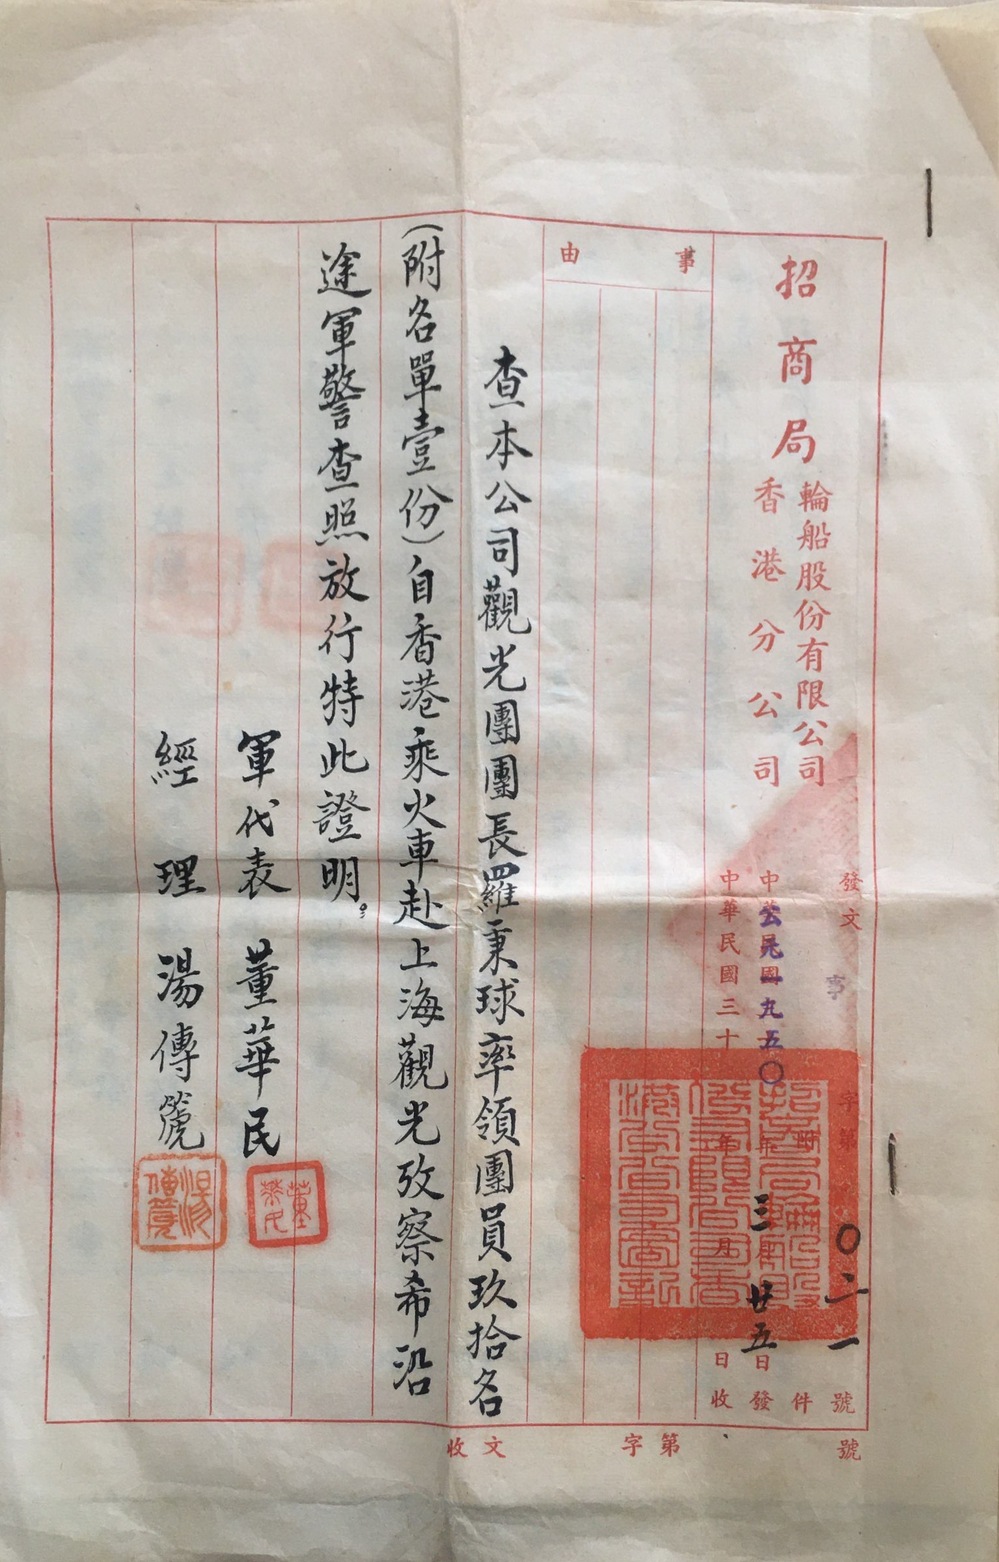 招商局
輪船股份有限公司
香港分公司
發文
事
字第〇二一號
附件
公元一九五〇年三月廿五日發
中華民國三十 年 月 日收
事由
查本公司觀光團團長羅秉球率領團員玖拾名
(附名單壹份)自香港乘火車赴上海觀光攷察希沿
途軍警查照放行特此證明。
軍代表 董華民
經理 湯傳篪
董華民
湯傳篪
號
第字
文收